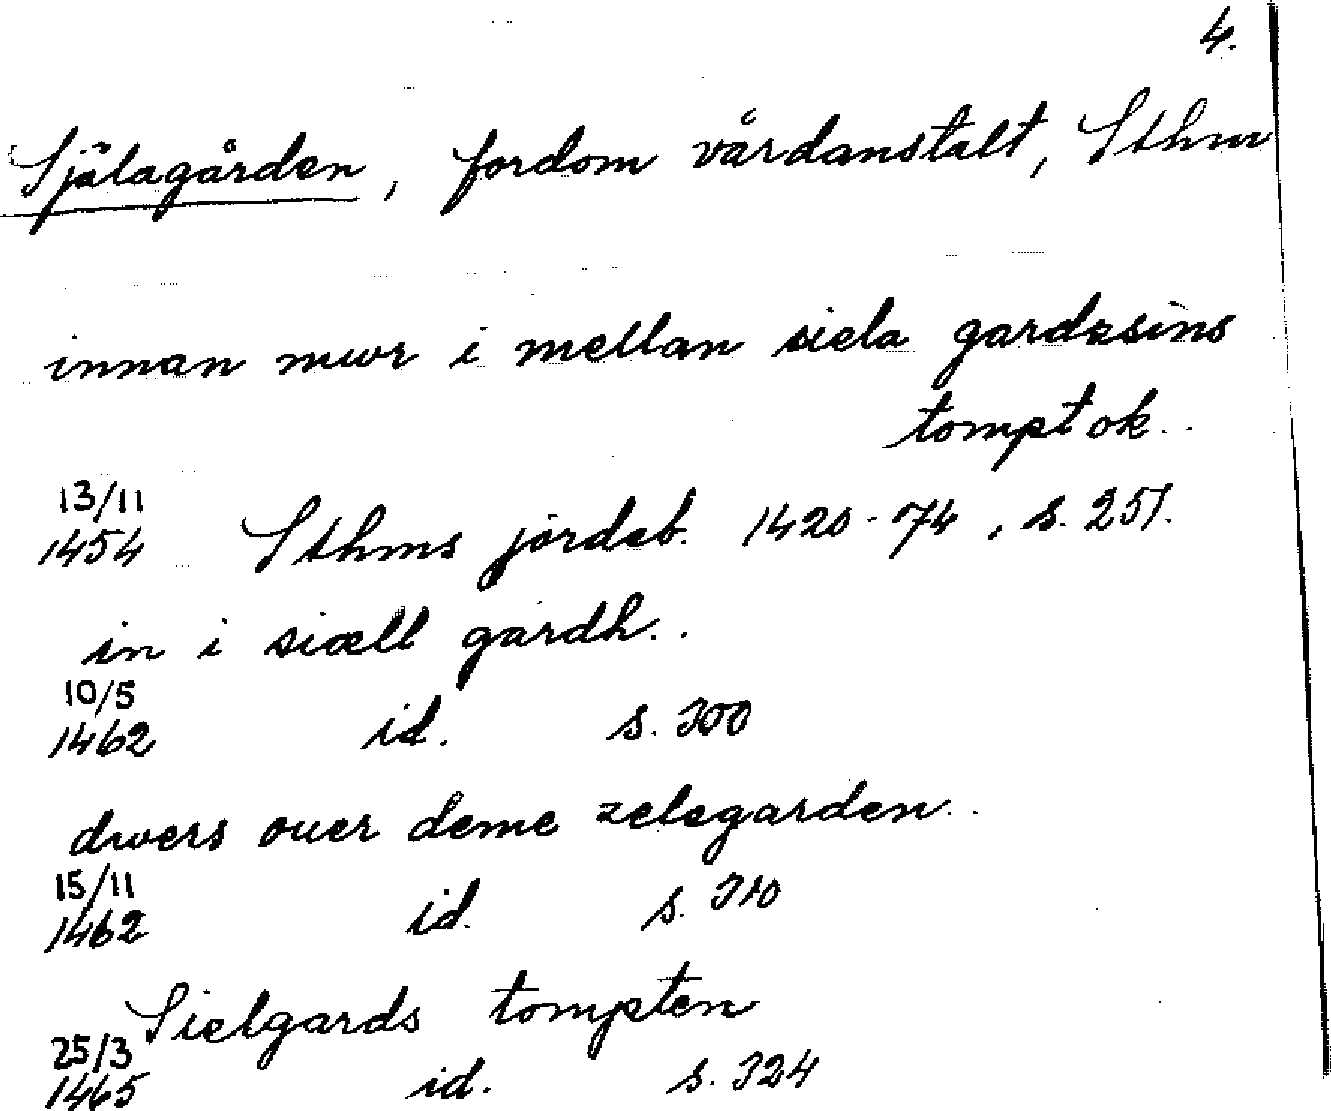 4.
Själagården, fordom vårdanstalt, Sthm
innan mwr i mellan siela gardzsins
tompt ok..
13/11
1454 Sthms jordeb. 1420-74, s. 251.
in i siæll gardh..
10/5
1462 id. s. 300
dwers ouer deme zelegarden..
15/11
1462 id. s. 310
Sielgards tompten
25/3
1465 id. s. 324